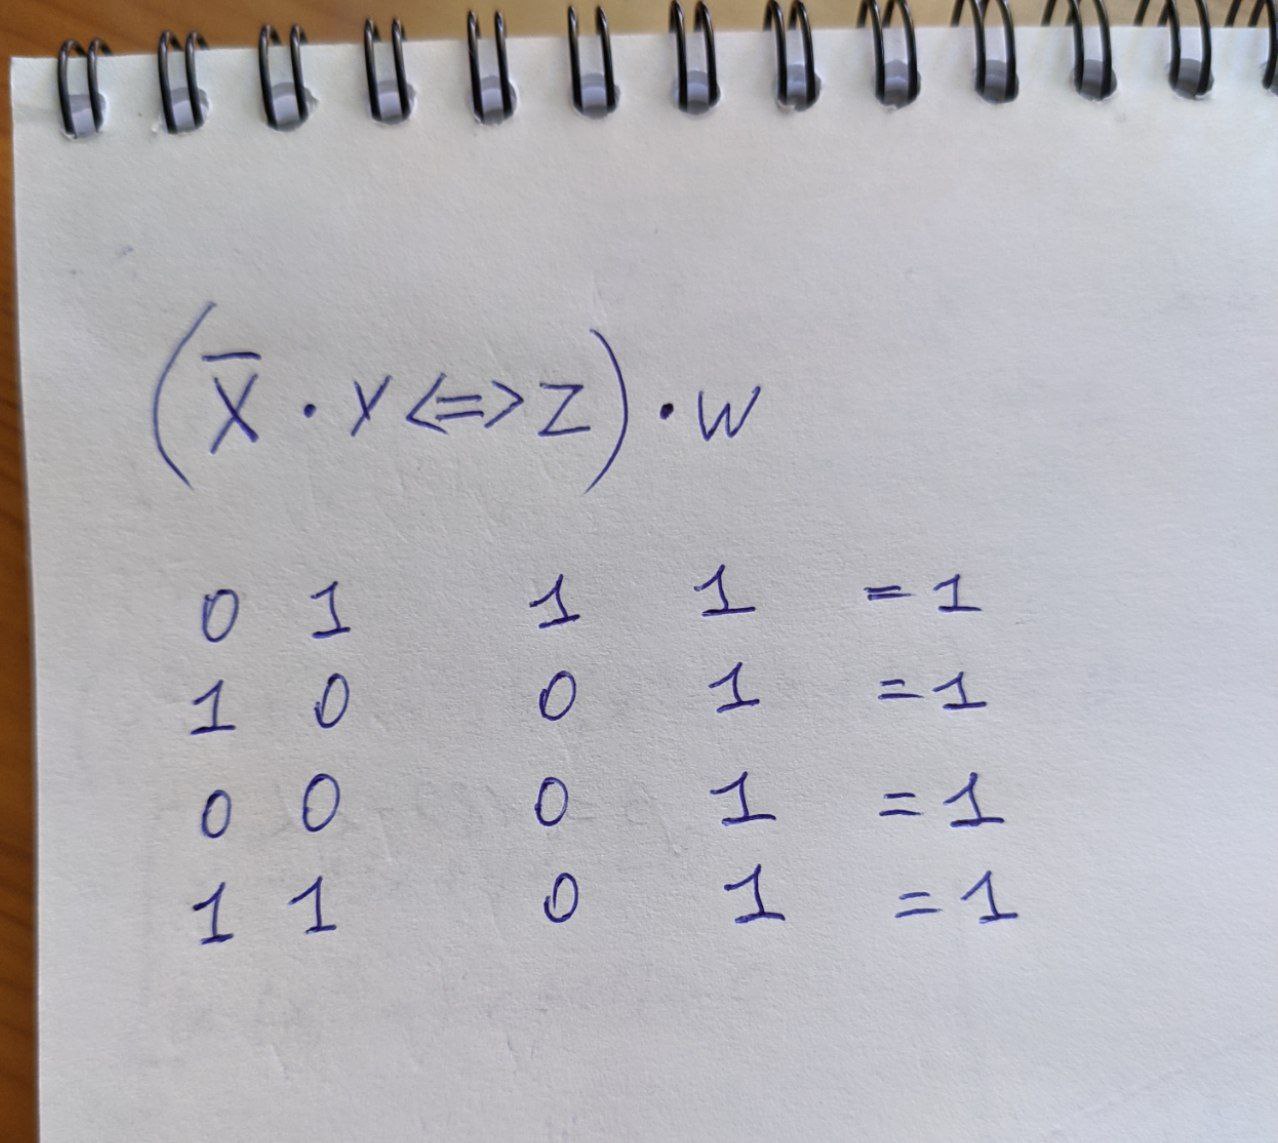 (X̅ · Y <=> Z) · W
0 1 1 1 = 1
1 0 0 1 = 1
0 0 0 1 = 1
1 1 0 1 = 1